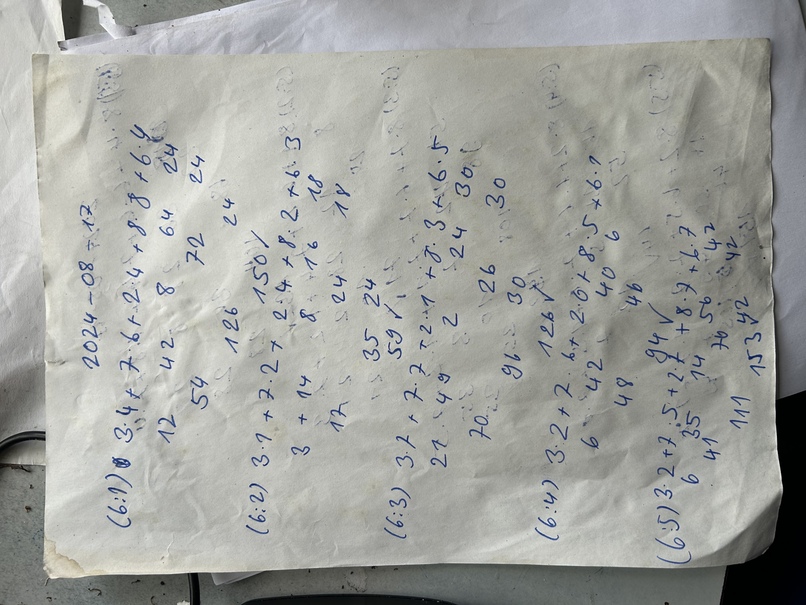 2024-08-17
(6:1) 3·4 + 7·6 + 2·4 + 8·8 + 6·4
12 42 8 64 24
54 72 24
126 24
150 ✓
(6:2) 3·1 + 7·2 + 2·4 + 8·2 + 6·3
3 + 14 8 + 16 18
17 24 18
35 24
59 ✓
(6:3) 3·7 + 7·7 + 2·1 + 8·3 + 6·5
21 49 2 24 30
70 26 30
96 30
126 ✓
(6:4) 3·2 + 7·6 + 2·0 + 8·5 + 6·1
6 42 40 6
48 46
94 ✓
(6:5) 3·2 + 7·5 + 2·7 + 8·7 + 6·7
6 35 14 56 42
41 70 42
111 42
153 ✓